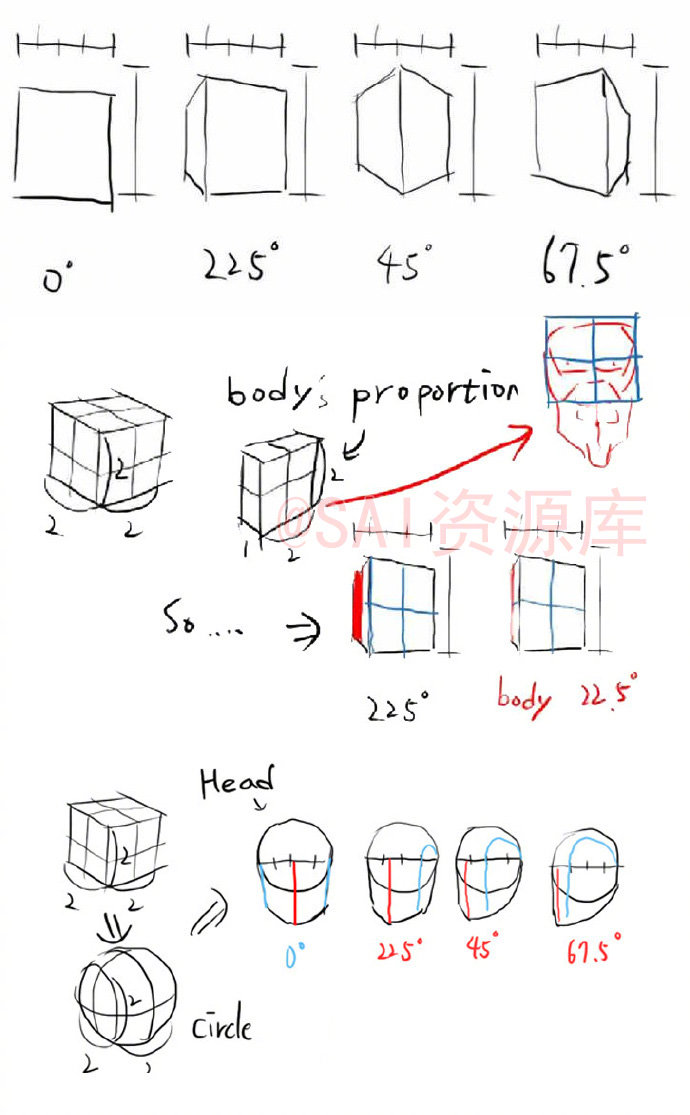 0° 225° 45° 67.5°
body's proportion
2
2 2
2
1 2
@SAI资源库
So....
225° body 22.5°
Head
2
2 2
0° 225° 45° 67.5°
2
Circle
2 2